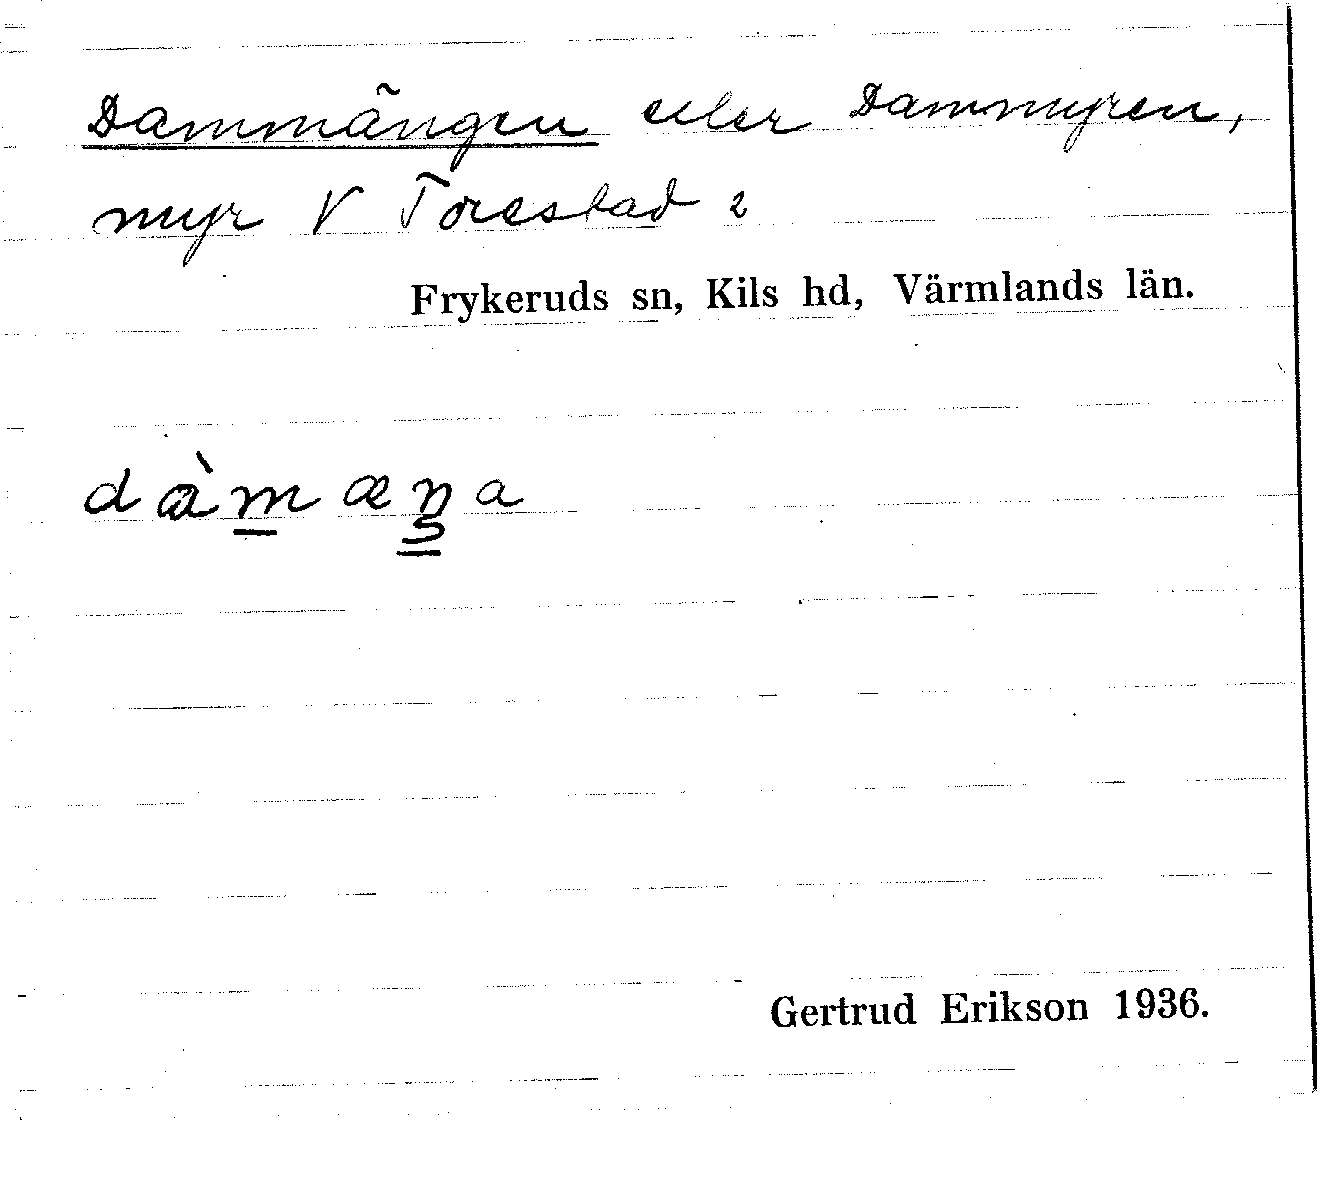 Dammängen eller Dammyren,
myr V Torestad 2
Frykeruds sn, Kils hd, Värmlands län.
dàmæŋa
Gertrud Erikson 1936.